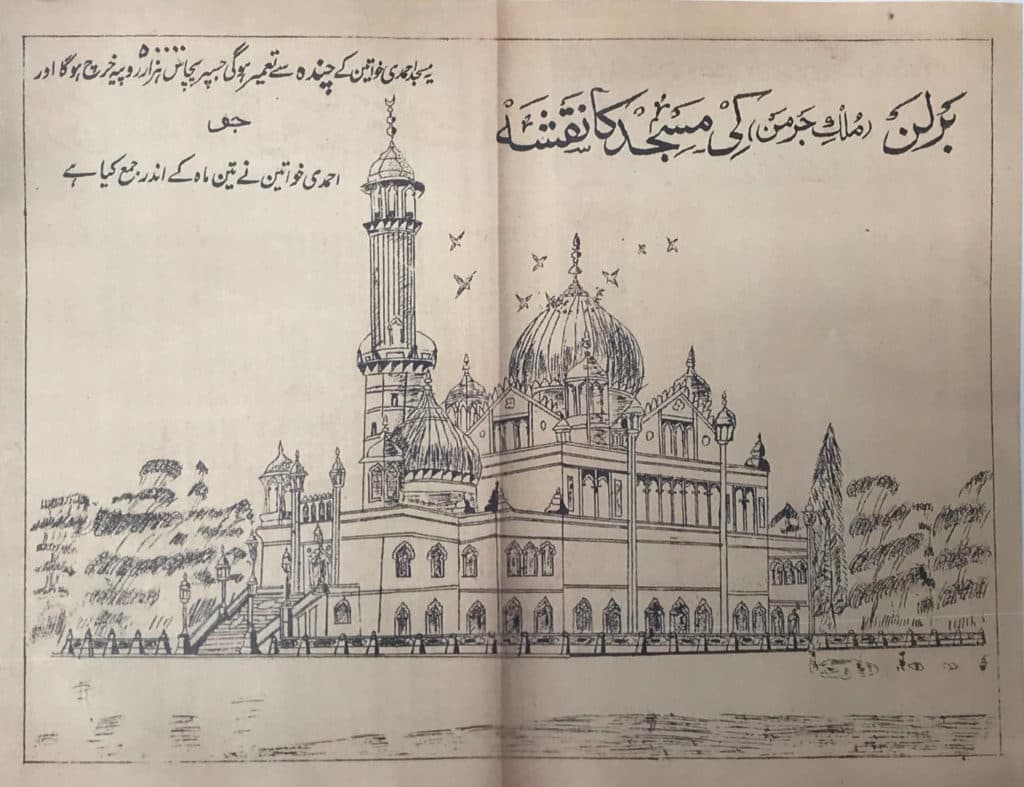 برلن (ملک جرمن) کی مسجد کا نقشہ
یہ مسجد احمدی خواتین کے چندہ سے تعمیر ہوگی جسپر پچاس ہزار ۵۰۰۰۰ روپیہ خرچ ہوگا اور
جو
احمدی خواتین نے تین ماہ کے اندر جمع کیا ہے